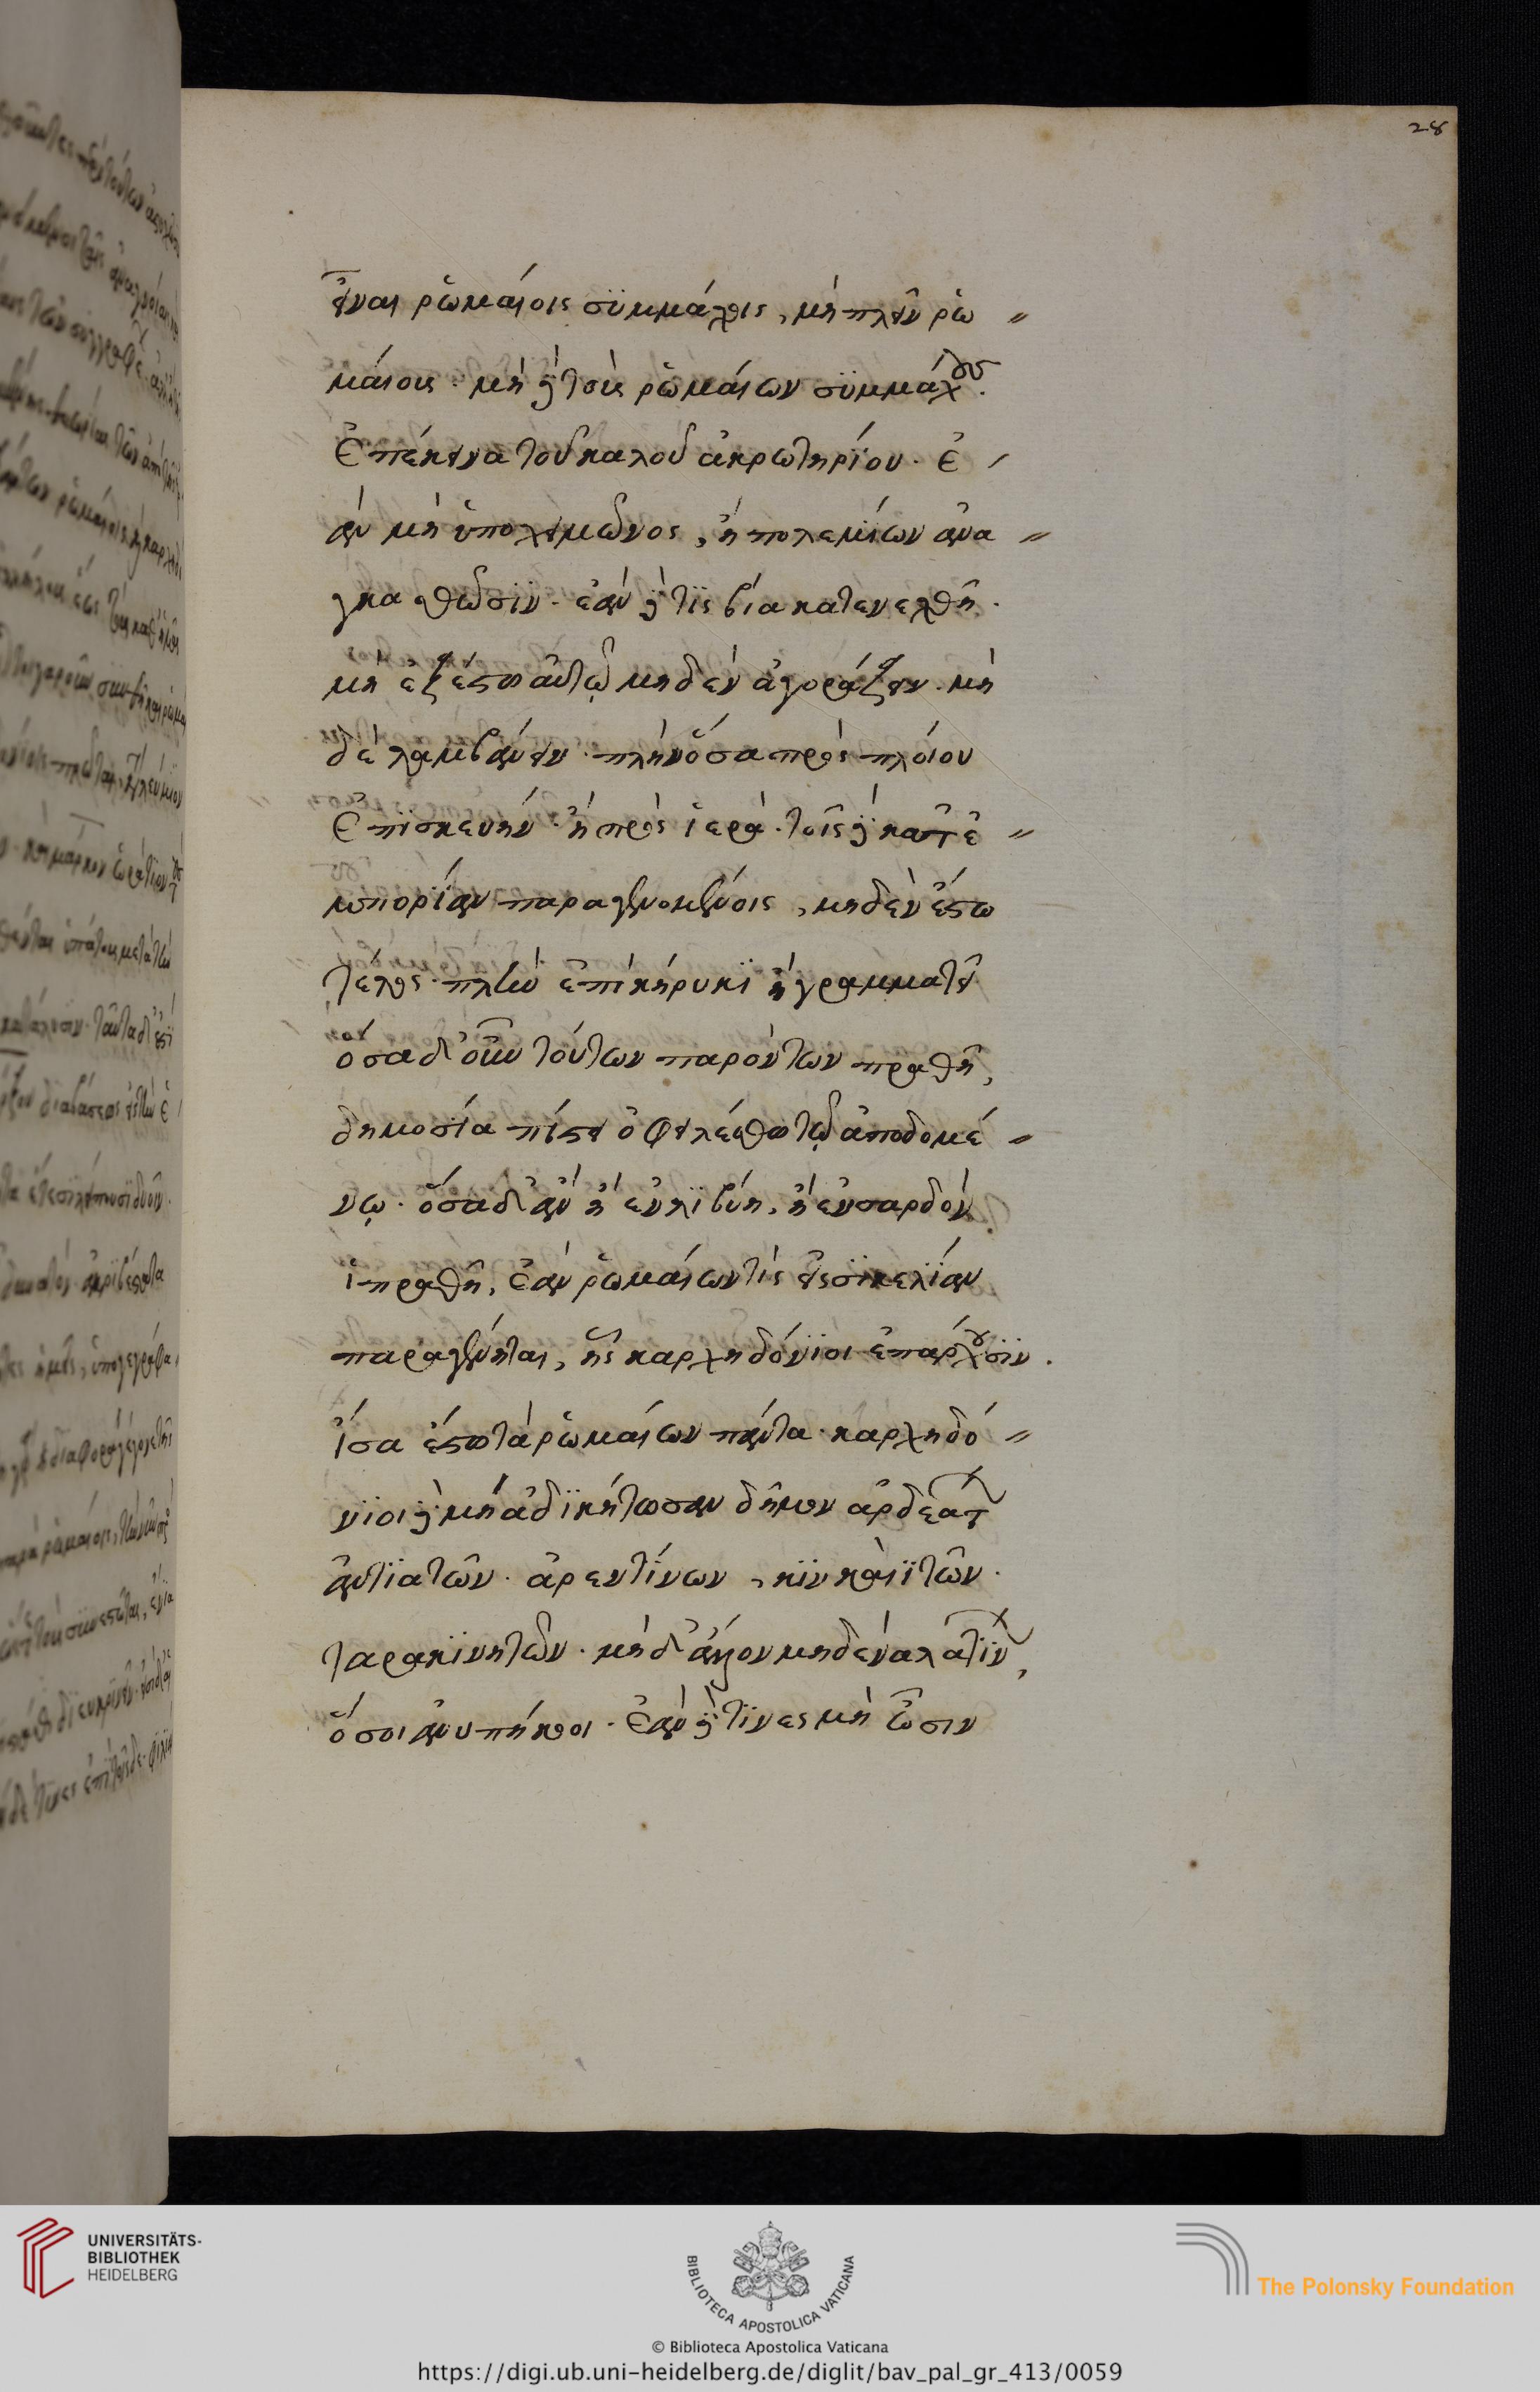 28
εἶναι ῥωμαίοις συμμάχοις, μὴ πλεῖν ῥω
μαίους. μὴ δὲ τοὺς ῥωμαίων συμμάχους.
ἐπέκεινα τοῦ καλοῦ ἀκρωτηρίου. ἐ
ὰν μὴ ὑπὸ χειμῶνος, ἢ πολεμίων ἀνα
γκασθῶσιν. ἐὰν δὲ τὶς βία κατενεχθῆ.
μὴ ἐξέστω αὐτῷ μηδὲν ἀγοράζειν. μὴ
δὲ λαμβάνειν. πλὴν ὅσα πρὸς πλόιου
ἐπισκευὴν. ἢ πρὸς ἱερά. τοῖς δὲ κατ' ἐ
μπορίαν παραγινομένοις, μηδὲν ἔστω
τέλος. πλὴν ἐπὶ κήρυκι ἢ γραμματεῖ
ὅσα δ' οὖν τούτων παρόντων πραθῆ,
δημοσία πίστει ὀφειλέσθω τῷ ἀποδομέ
νῳ. ὅσα δ' ἂν ἢ ἐν λιβύη, ἢ ἐν σαρδόν
ι πραθῆ, ἐὰν ῥωμαίων τὶς εἰς σικελίαν
παραγίνηται, ἧς καρχηδόνιοι ἐπάρχουσιν.
ἴσα ἔστω τὰ ῥωμαίων πάντα. καρχηδό
νιοι δὲ μὴ ἀδικήτωσαν δῆμον ἀρδεατ
ἀντιατῶν. ἀρεντίνων, κιρκαιιτῶν.
ταρακινητῶν. μὴ δ' ἄλλον μηδένα λατίν,
ὅσοι ἂν ὑπήκοοι. ἐὰν δὲ τινες μὴ ὦσιν
UNIVERSITÄTS-
BIBLIOTHEK
HEIDELBERG
BIBLIOTECA APOSTOLICA VATICANA
The Polonsky Foundation
© Biblioteca Apostolica Vaticana
https://digi.ub.uni-heidelberg.de/diglit/bav_pal_gr_413/0059